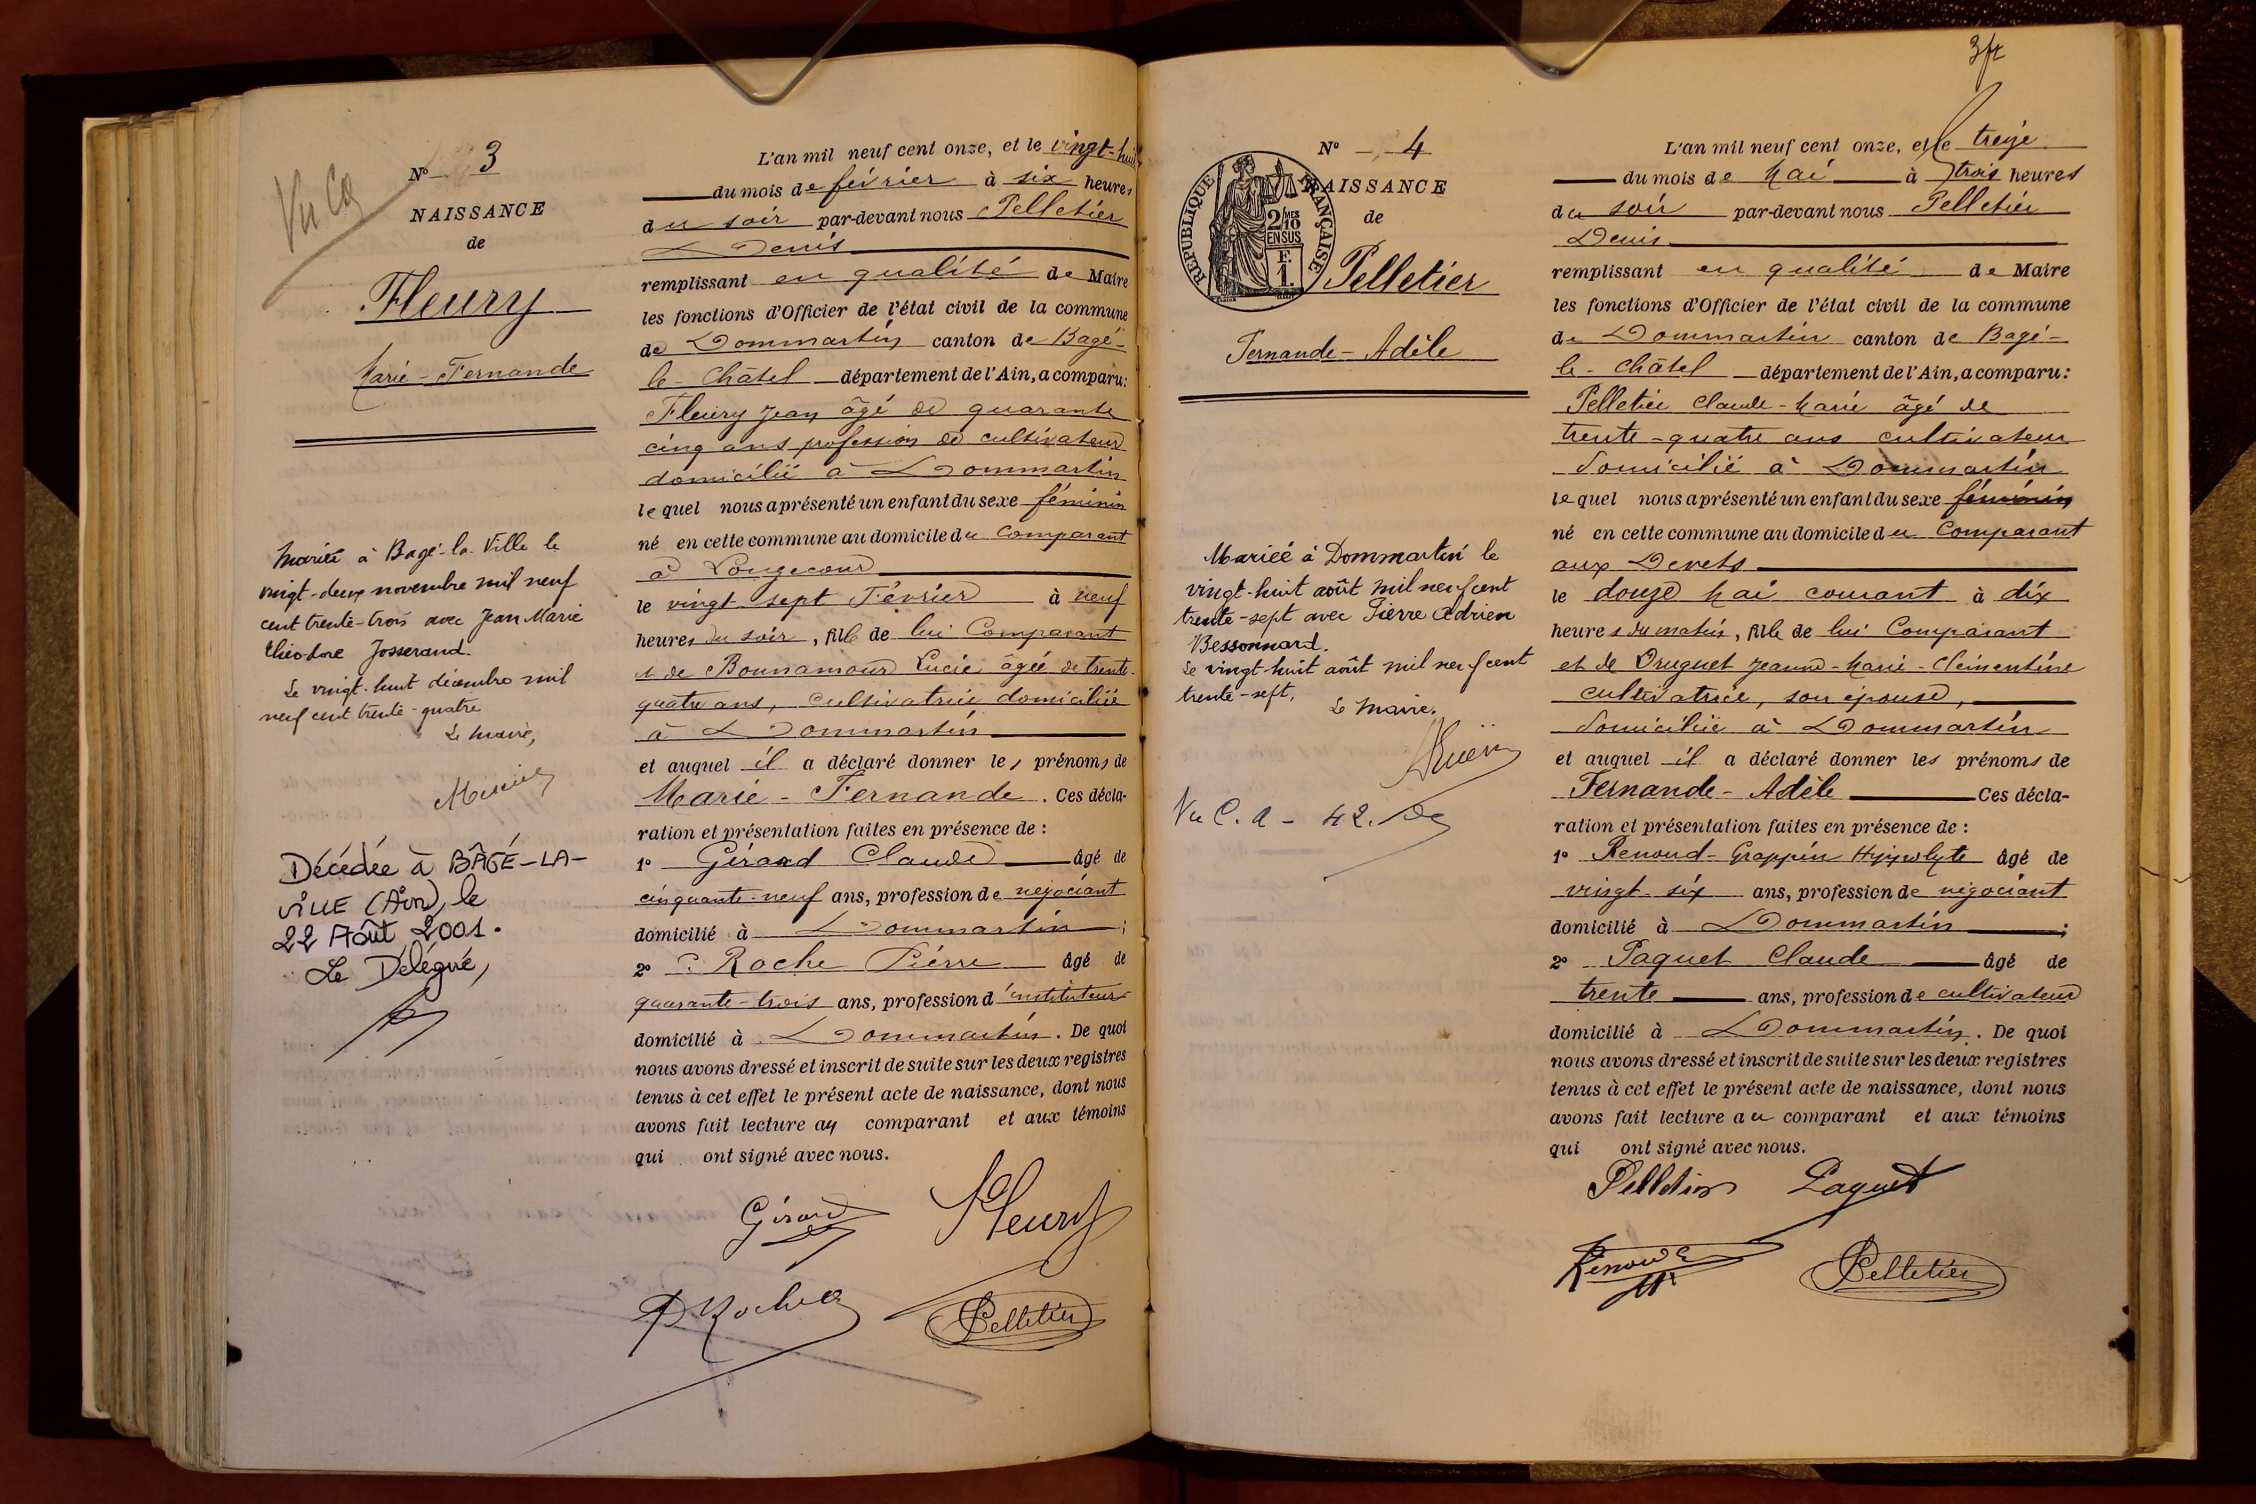 Nº 3
NAISSANCE
de
Fleury
Marie - Fernande
mariée à Bagé-la-Ville le
vingt-deux novembre mil neuf
cent trente-trois avec Jean Marie
théodore Josserand.
Le vingt-huit décembre mil
neuf cent trente-quatre
Le maire,
Décédée à BÂGÉ-LA-
VILLE (Ain), le
22 Août 2001.
Le Délégué,
L'an mil neuf cent onze, et le vingt-huit
du mois de février à six heures
du soir par-devant nous Pelletier
Denis
remplissant en qualité de Maire
les fonctions d'Officier de l'état civil de la commune
de Dommartin canton de Bagé-
le-Châtel département de l'Ain, a comparu:
Fleury Jean âgé de quarante
cinq ans profession de cultivateur
domicilié à Dommartin
lequel nous a présenté un enfant du sexe féminin
né en cette commune au domicile du Comparant
à Longecour
le vingt sept Février à neuf
heures du soir, fille de lui Comparant
et de Bonnamour Lucie âgée de trente-
quatre ans, cultivatrice domiciliée
à Dommartin
et auquel il a déclaré donner les prénoms de
Marie - Fernande. Ces décla-
ration et présentation faites en présence de :
1º Girard Claude âgé de
cinquante-neuf ans, profession de négociant
domicilié à Dommartin ;
2º Roche Pierre âgé de
quarante-trois ans, profession d'instituteur
domicilié à Dommartin. De quoi
nous avons dressé et inscrit de suite sur les deux registres
tenus à cet effet le présent acte de naissance, dont nous
avons fait lecture au comparant et aux témoins
qui ont signé avec nous.
Girard Fleury
P. Roche Pelletier
3fr
Nº 4
RÉPUBLIQUE FRANÇAISE
2/10 MES
EN SUS
F.
1.
NAISSANCE
de
Pelletier
Fernande - Adèle
Mariée à Dommartin le
vingt-huit août mil neuf cent
trente-sept avec Pierre Adrien
Bessonnard.
Le vingt-huit août mil neuf cent
trente-sept,
Le Maire.
Vu C. A - 42.
L'an mil neuf cent onze, et le treize
du mois de Mai à trois heures
du soir par-devant nous Pelletier
Denis
remplissant en qualité de Maire
les fonctions d'Officier de l'état civil de la commune
de Dommartin canton de Bagé-
le-Châtel département de l'Ain, a comparu:
Pelletier Claude-Marie âgé de
trente-quatre ans cultivateur
domicilié à Dommartin
lequel nous a présenté un enfant du sexe féminin
né en cette commune au domicile du Comparant
aux Devets
le douze Mai courant à dix
heures du matin, fille de lui Comparant
et de Druguet Jeanne-Marie-Clémentine
cultivatrice, son épouse,
domiciliée à Dommartin
et auquel il a déclaré donner les prénoms de
Fernande - Adèle Ces décla-
ration et présentation faites en présence de :
1º Renoud-Grappin Hyppolyte âgé de
vingt-six ans, profession de négociant
domicilié à Dommartin ;
2º Paquet Claude âgé de
trente ans, profession de cultivateur
domicilié à Dommartin. De quoi
nous avons dressé et inscrit de suite sur les deux registres
tenus à cet effet le présent acte de naissance, dont nous
avons fait lecture au comparant et aux témoins
qui ont signé avec nous.
Pelletier Paquet
Renoud Pelletier